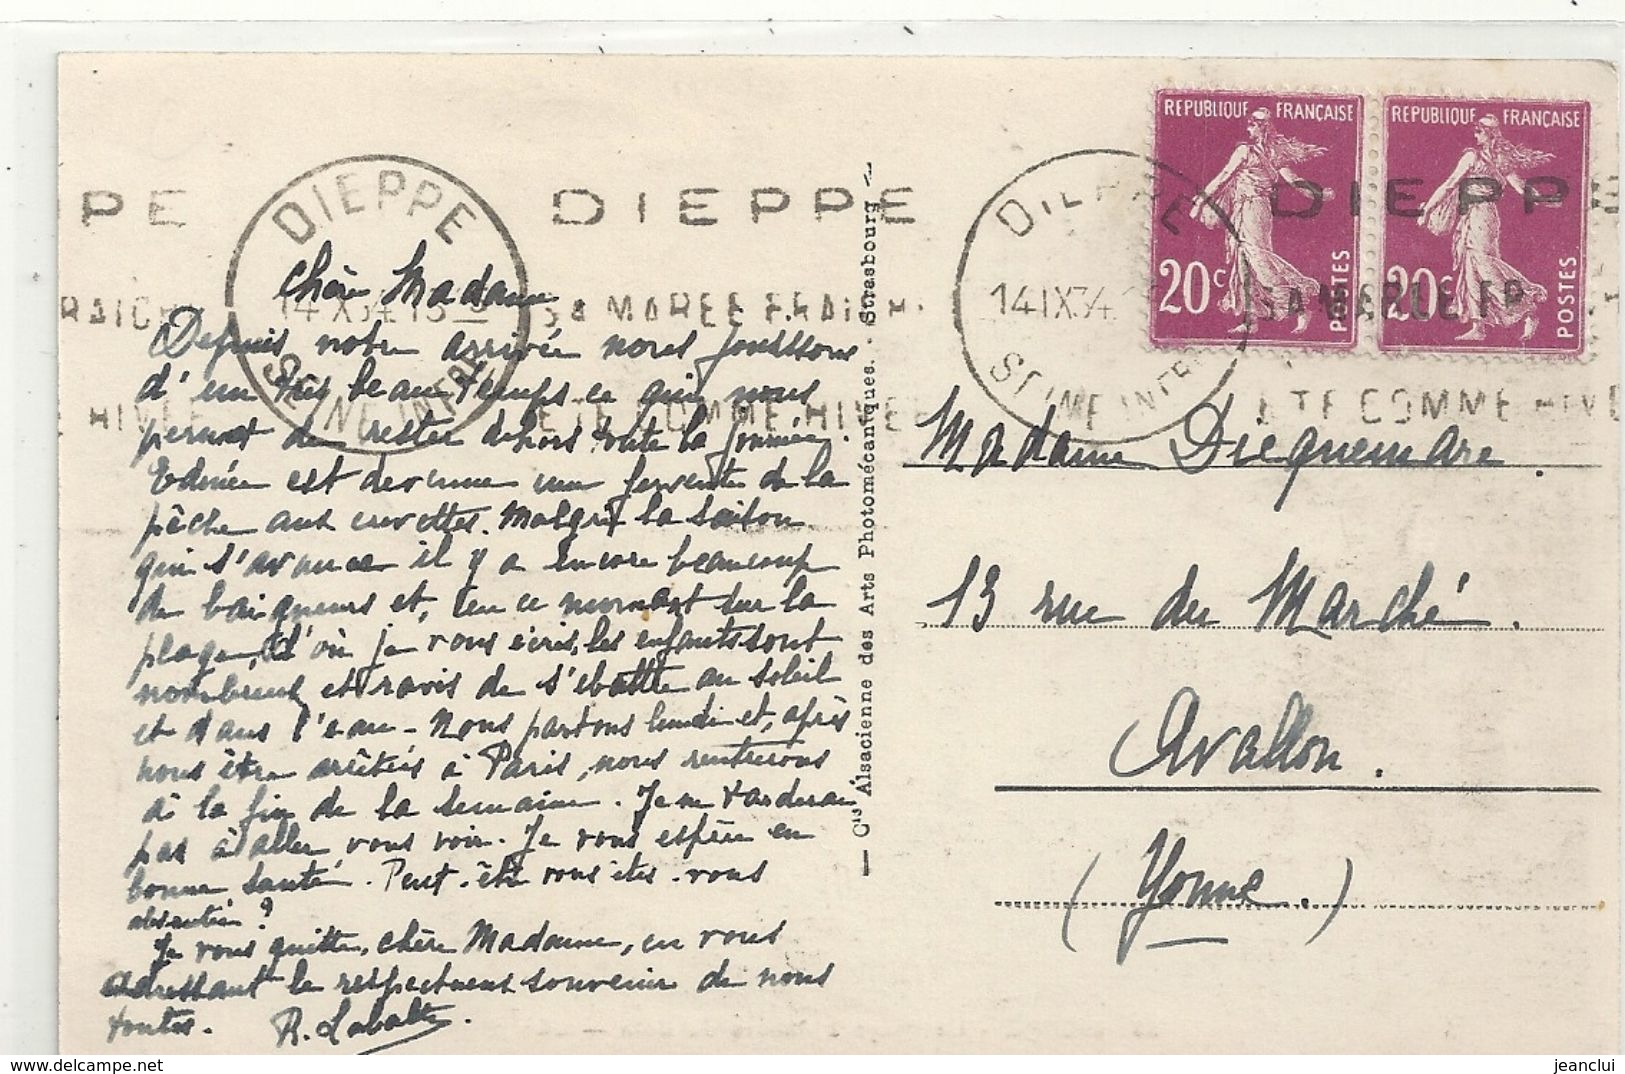 REPUBLIQUE FRANÇAISE
20c
POSTES
REPUBLIQUE FRANÇAISE
20c
POSTES
DIEPPE
14 IX 34
SEINE INFRE
DIEPPE
SA MAREE FRAICHE
ETE COMME HIVER
DIEPPE
14 IX 34
SEINE INFRE
DIEPPE
ETE COMME HIVE
Chère Madame
Depuis notre arrivée nous jouissons
d'un très beau temps ce qui nous
permet de rester dehors toute la journée.
Edmée est devenue une fervente de la
pêche aux crevettes. Malgré la saison
qui s'avance il y a encore beaucoup
de baigneurs et, en ce moment sur la
plage, d'où je vous écris, les enfants sont
nombreux et ravis de s'ebattre au soleil
et dans l'eau - Nous partons lundi et, après
nous être arrêtées à Paris, nous rentrerons
à la fin de la semaine. Je ne tarderai
pas à aller vous voir. Je vous espère en
bonne santé. Peut-être vous êtes-vous
absentée ?
Je vous quitte, chère Madame, en vous
adressant le respectueux souvenir de nous
toutes. R. Labatte.
— Cie Alsacienne des Arts Photomécaniques. - Strasbourg —
Madame Dieguemare.
13 rue du Marché.
Avallon.
(Yonne.)
jeanclui